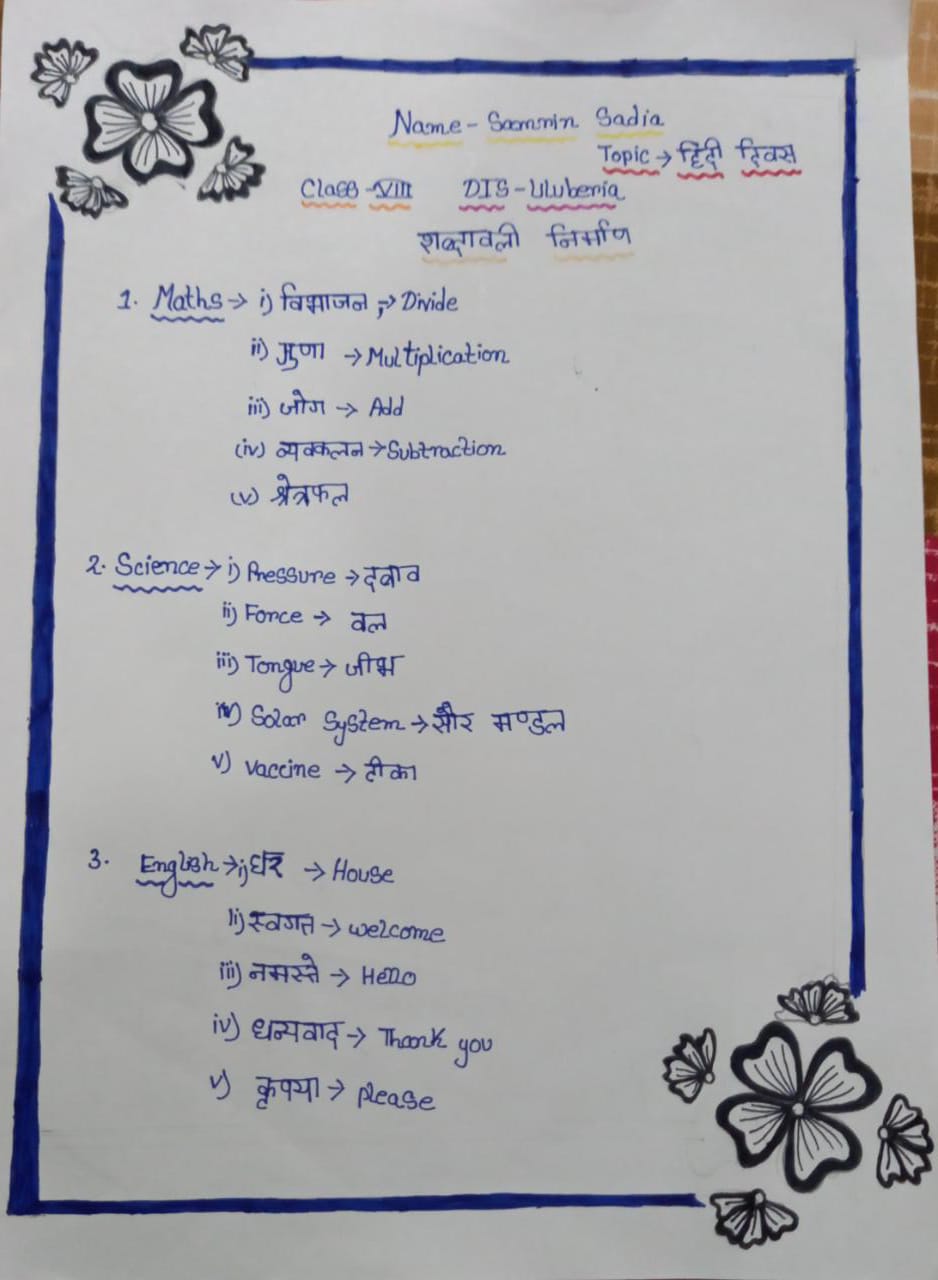 Name - Samnin Sadia
Topic → हिंदी दिवस
Class - VIII DIS - Uluberia
शब्दावली निर्माण
1. Maths → i) विभाजन → Divide
ii) गुणा → Multiplication
iii) जोग → Add
(iv) व्यवकलन → Subtraction
(v) श्रेत्रफल
2. Science → i) Pressure → दबाव
ii) Force → वल
iii) Tongue → जीभ
iv) Solar System → सौर मण्डल
v) Vaccine → टीका
3. English → i) घर → House
ii) स्वगत → welcome
iii) नमस्ते → Hello
iv) धन्यवाद → Thank you
v) कृपया → please